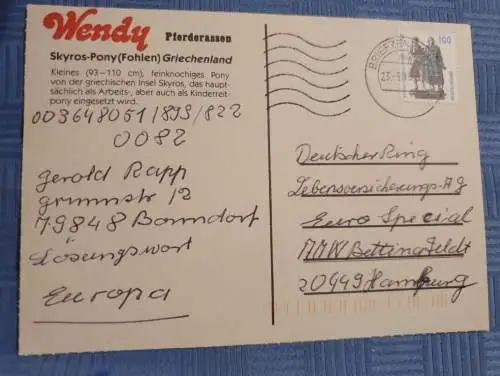 Wendy Pferderassen
Skyros-Pony (Fohlen) Griechenland
Kleines (93–110 cm), feinknochiges Pony
von der griechischen Insel Skyros, das haupt-
sächlich als Arbeits-, aber auch als Kinderreit-
pony eingesetzt wird.
003648051/893/822
0082
Gerold Rapp
grimmstr 12
79848 Bonndorf
Lösungswort
Europa
100
23.
Deutscher Ring
Lebensversicherungs-AG
Euro Special
Bettina Feldt
20449 Hamburg